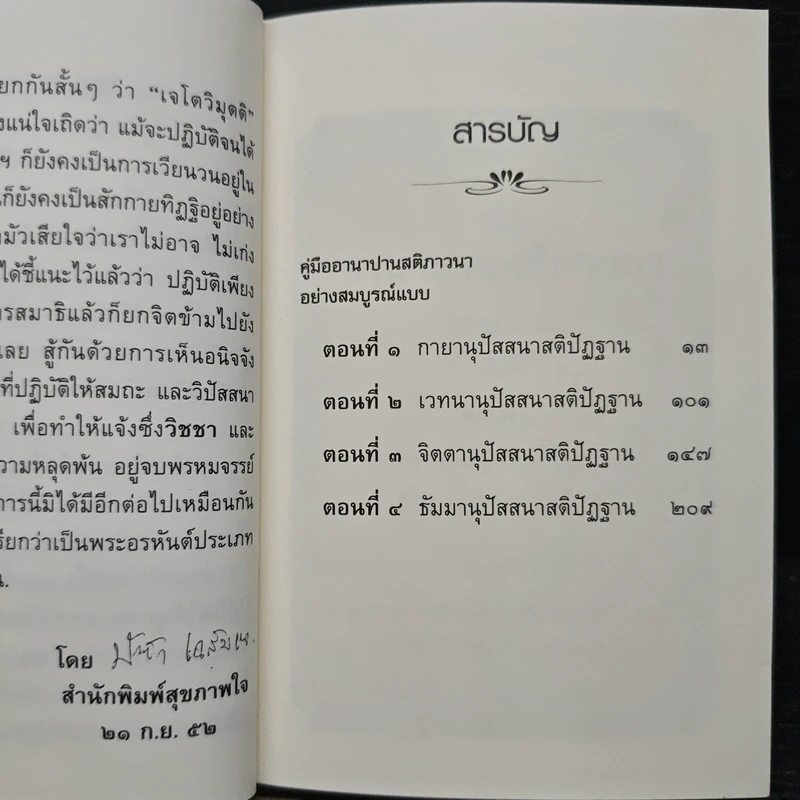 ยกกันสั้นๆ ว่า “เจโตวิมุตติ”
แน่ใจเถิดว่า แม้จะปฏิบัติจนได้
ฯ ก็ยังคงเป็นการเวียนวนอยู่ใน
ก็ยังคงเป็นสักกายทิฏฐิอยู่อย่าง
มัวเสียใจว่าเราไม่อาจ ไม่เก่ง
ได้ชี้แนะไว้แล้วว่า ปฏิบัติเพียง
รสมาธิแล้วก็ยกจิตข้ามไปยัง
เลย สู้กันด้วยการเห็นอนิจจัง
ที่ปฏิบัติให้สมถะ และวิปัสสนา
เพื่อทำให้แจ้งซึ่งวิชชา และ
วามหลุดพ้น อยู่จบพรหมจรรย์
การนี้มิได้มีอีกต่อไปเหมือนกัน
รียกว่าเป็นพระอรหันต์ประเภท
น.
โดย
สำนักพิมพ์สุขภาพใจ
๒๑ ก.ย. ๕๒
สารบัญ
คู่มืออานาปานสติภาวนา
อย่างสมบูรณ์แบบ
ตอนที่ ๑ กายานุปัสสนาสติปัฏฐาน ๑๓
ตอนที่ ๒ เวทนานุปัสสนาสติปัฏฐาน ๑๐๑
ตอนที่ ๓ จิตตานุปัสสนาสติปัฏฐาน ๑๔๗
ตอนที่ ๔ ธัมมานุปัสสนาสติปัฏฐาน ๒๐๙